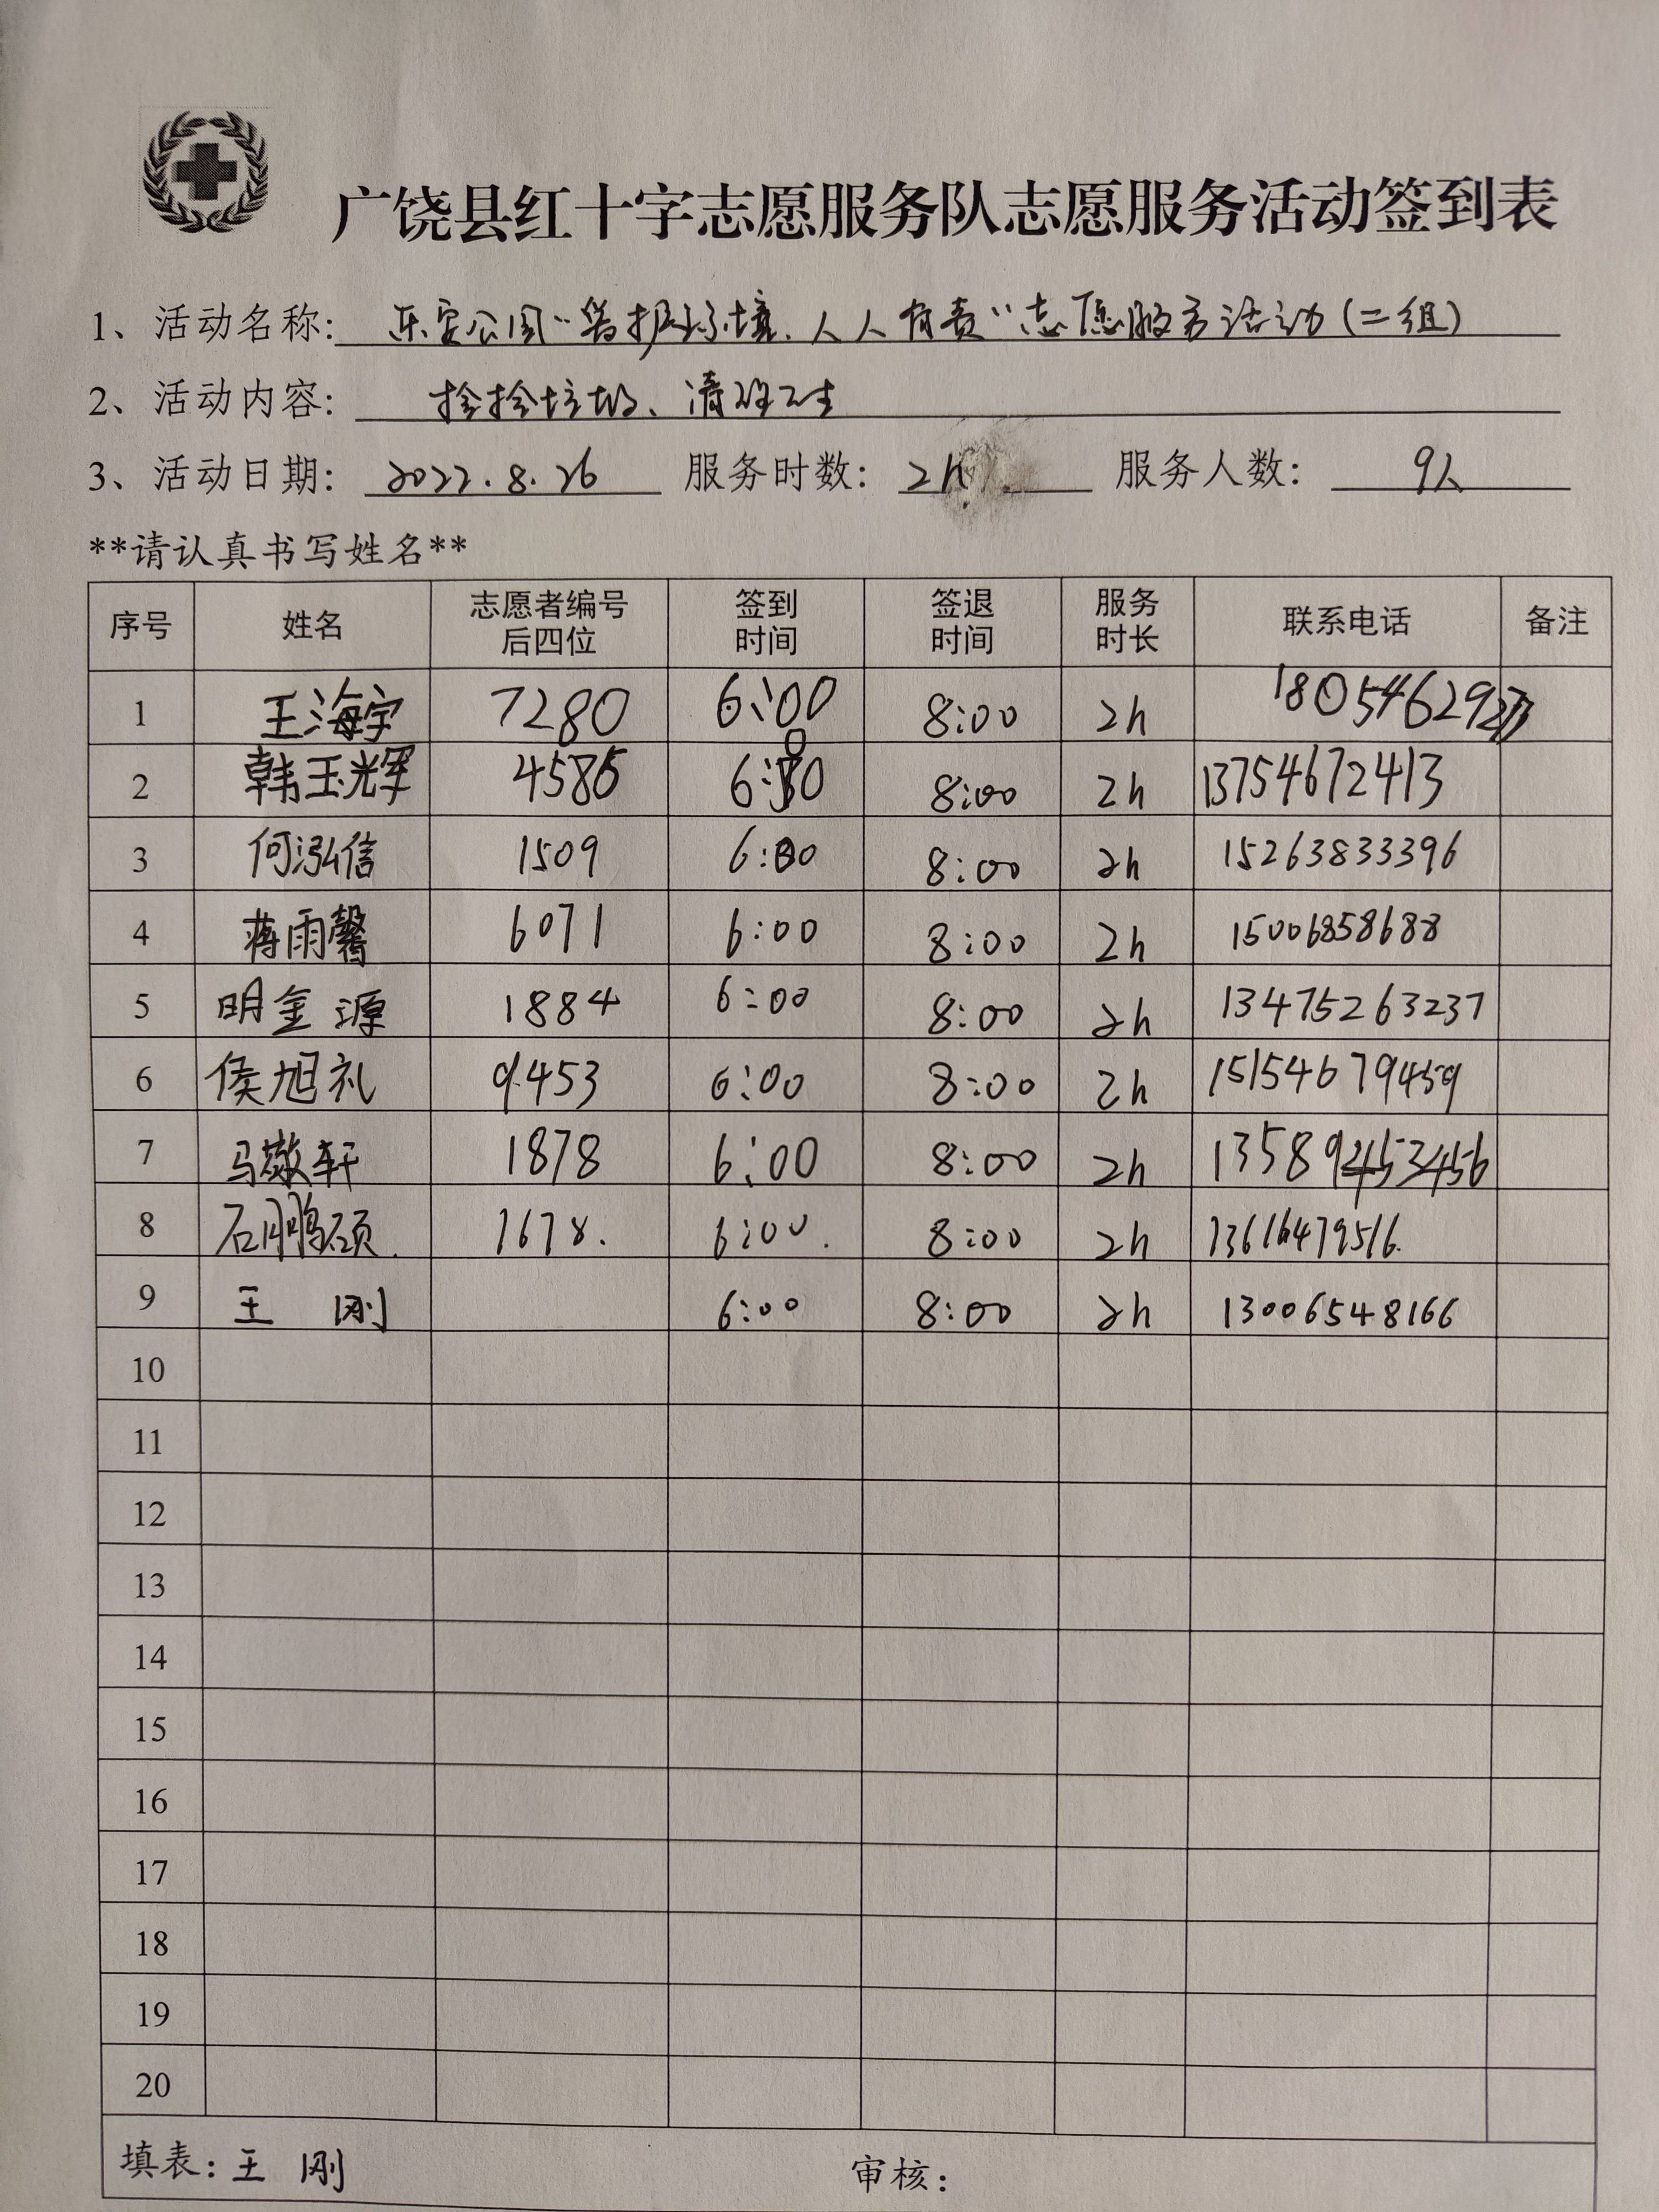 广饶县红十字志愿服务队志愿服务活动签到表
1、活动名称: 乐安公园“爱护环境、人人有责”志愿服务活动(二组)
2、活动内容: 捡拾垃圾、清理卫生
3、活动日期: 2022.8.26 服务时数: 2h 服务人数: 9人
**请认真书写姓名**
序号 姓名 志愿者编号后四位 签到时间 签退时间 服务时长 联系电话 备注
1 王海宇 7280 6:00 8:00 2h 180546292
2 韩玉辉 4585 6:00 8:00 2h 13754672413
3 何泓信 1509 6:00 8:00 2h 15263833396
4 蒋雨馨 6071 6:00 8:00 2h 15006858688
5 明金源 1884 6:00 8:00 2h 13475263237
6 侯旭礼 9453 6:00 8:00 2h 15154679459
7 马敬轩 1878 6:00 8:00 2h 13589453456
8 石鹏硕. 1678. 6:00. 8:00 2h 13616479516.
9 王 刚 6:00 8:00 2h 13006548166
10
11
12
13
14
15
16
17
18
19
20
填表: 王 刚 审核: